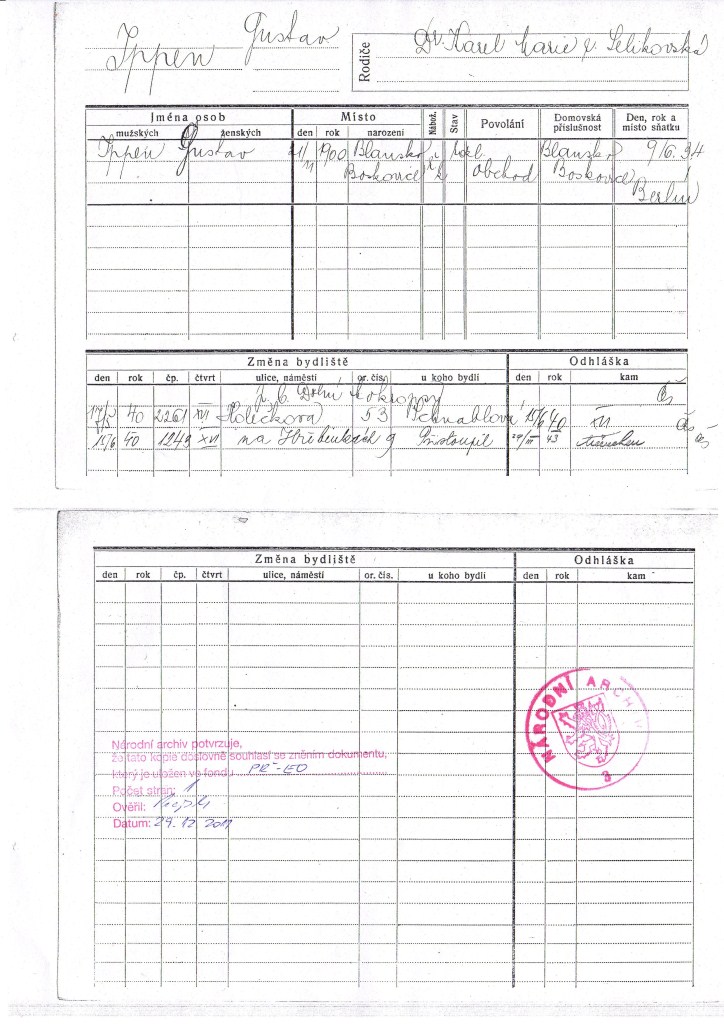 Ippen Gustav
Rodiče Dr. Karel Marie r. Selikovská
Jména osob Místo Nábož. Stav Povolání Domovská příslušnost Den, rok a místo sňatku
mužských ženských den rok narození
Ippen Gustav 21/11 1900 Blansko obchod Blansko 9/6. 34
Boskovice Boskovice Berlin
Změna bydliště Odhláška
den rok čp. čtvrt ulice, náměstí or. čís. u koho bydlí den rok kam
p. b. Dolní
40 2261 XVI Holečkova 53 Schnablová 15/6 40 XVI
15/6 40 1949 XVI na Hřebenkách 9 Přistoupil 43
Změna bydliště Odhláška
den rok čp. čtvrt ulice, náměstí or. čís. u koho bydlí den rok kam
NÁRODNÍ ARCHIV
3
Národní archiv potvrzuje,
že tato kopie doslovně souhlasí se zněním dokumentu,
který je uložen ve fondu PŘ-EO
Počet stran: 1
Ověřil:
Datum: 29.12 2011